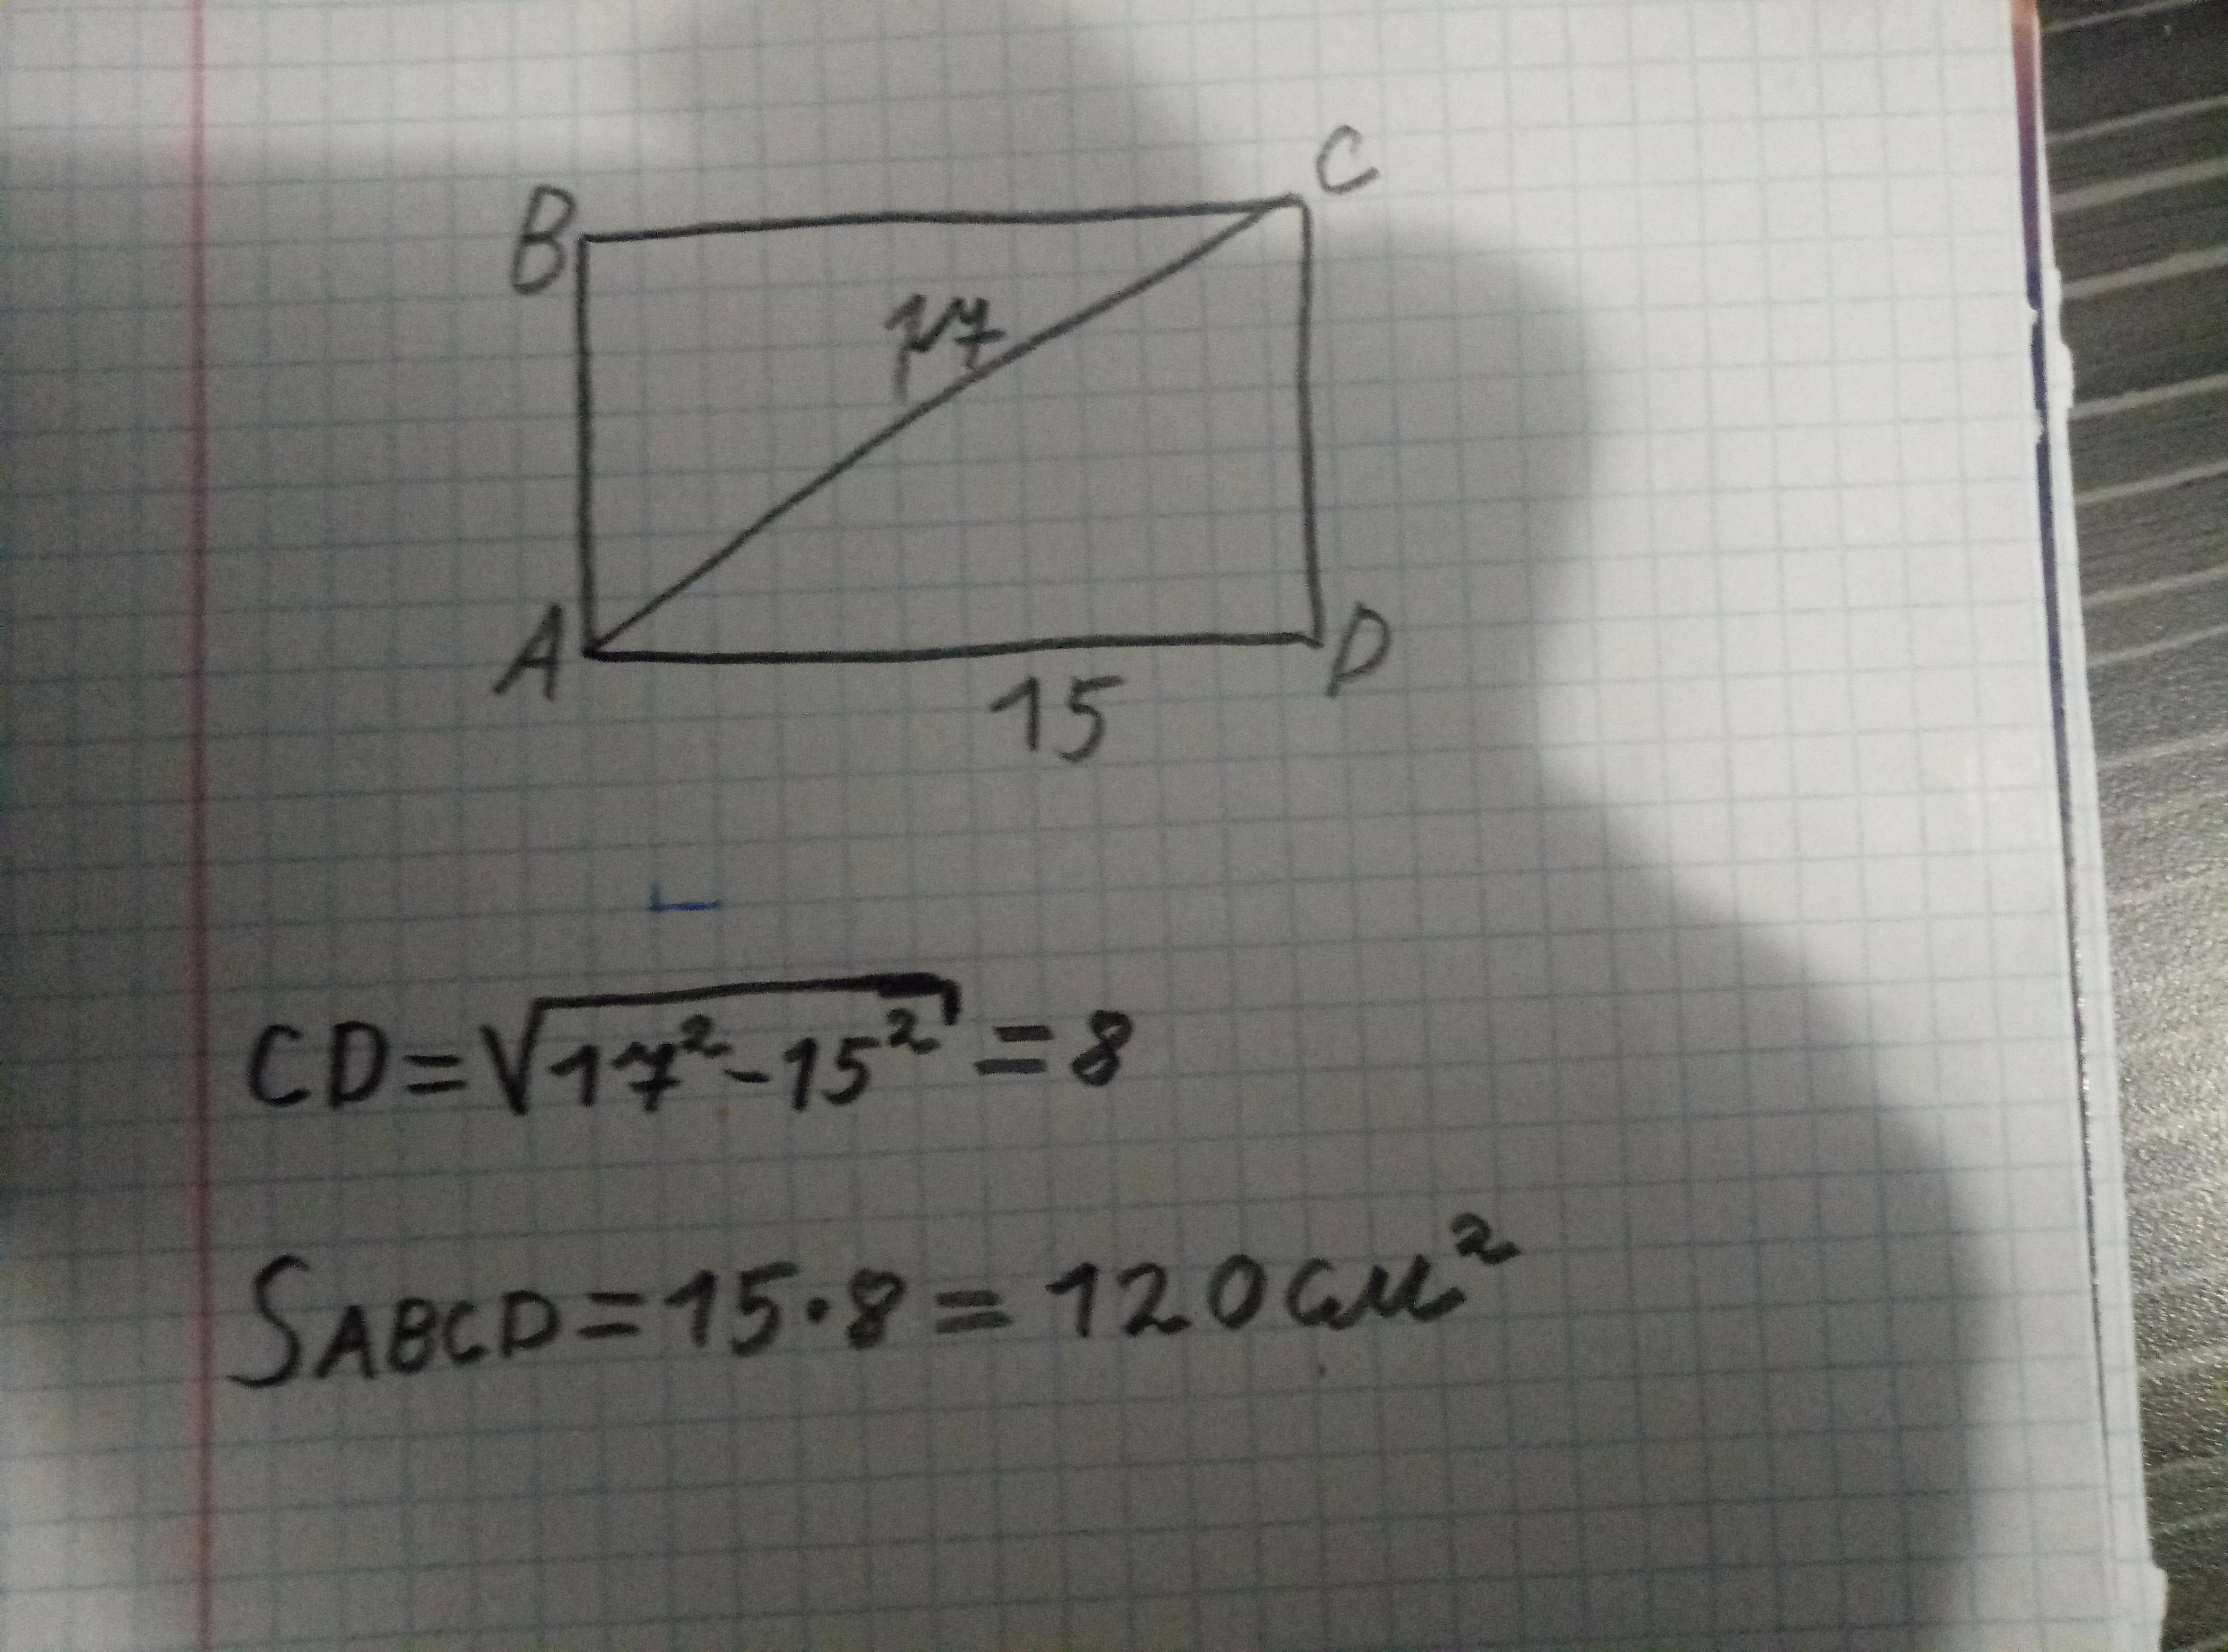 C
B
17
A
D
15
CD=√17²-15² = 8
SABCD=15·8=120см²